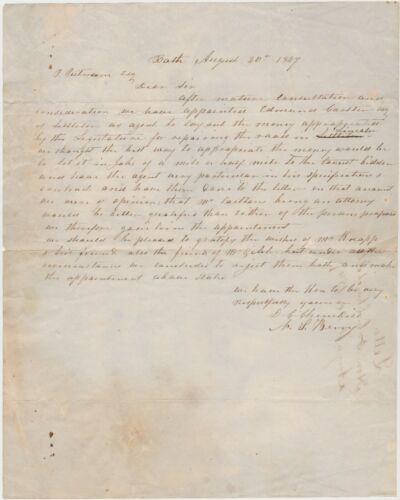 Bath August 20th 1847
J. Putnam Esq
Dear Sir
After mature Consultation and
consideration we have appointed Edmund Carlton Esq
of Littleton as agent to lay out the money appropriated
by the Legislature for repairing the road in Lincoln
we thought the best way to appropriate the money would be
to let it in jobs of a mile or half mile to the lowest bidder
and have the agent very particular in his specifications &
contract and have them done to the letter on that account
we were of opinion that Mr Carlton being an attorney
would be better qualified than either of the persons proposed
we therefore gave him the appointment
we should be pleased to gratify the wishes of Mr Knapp
&
friend also the friend of Mr
but under all the
circumstances we concluded to reject them both and make
the appointment above stated
we have the Honor to be very
respectfully yours
N. S. Berry